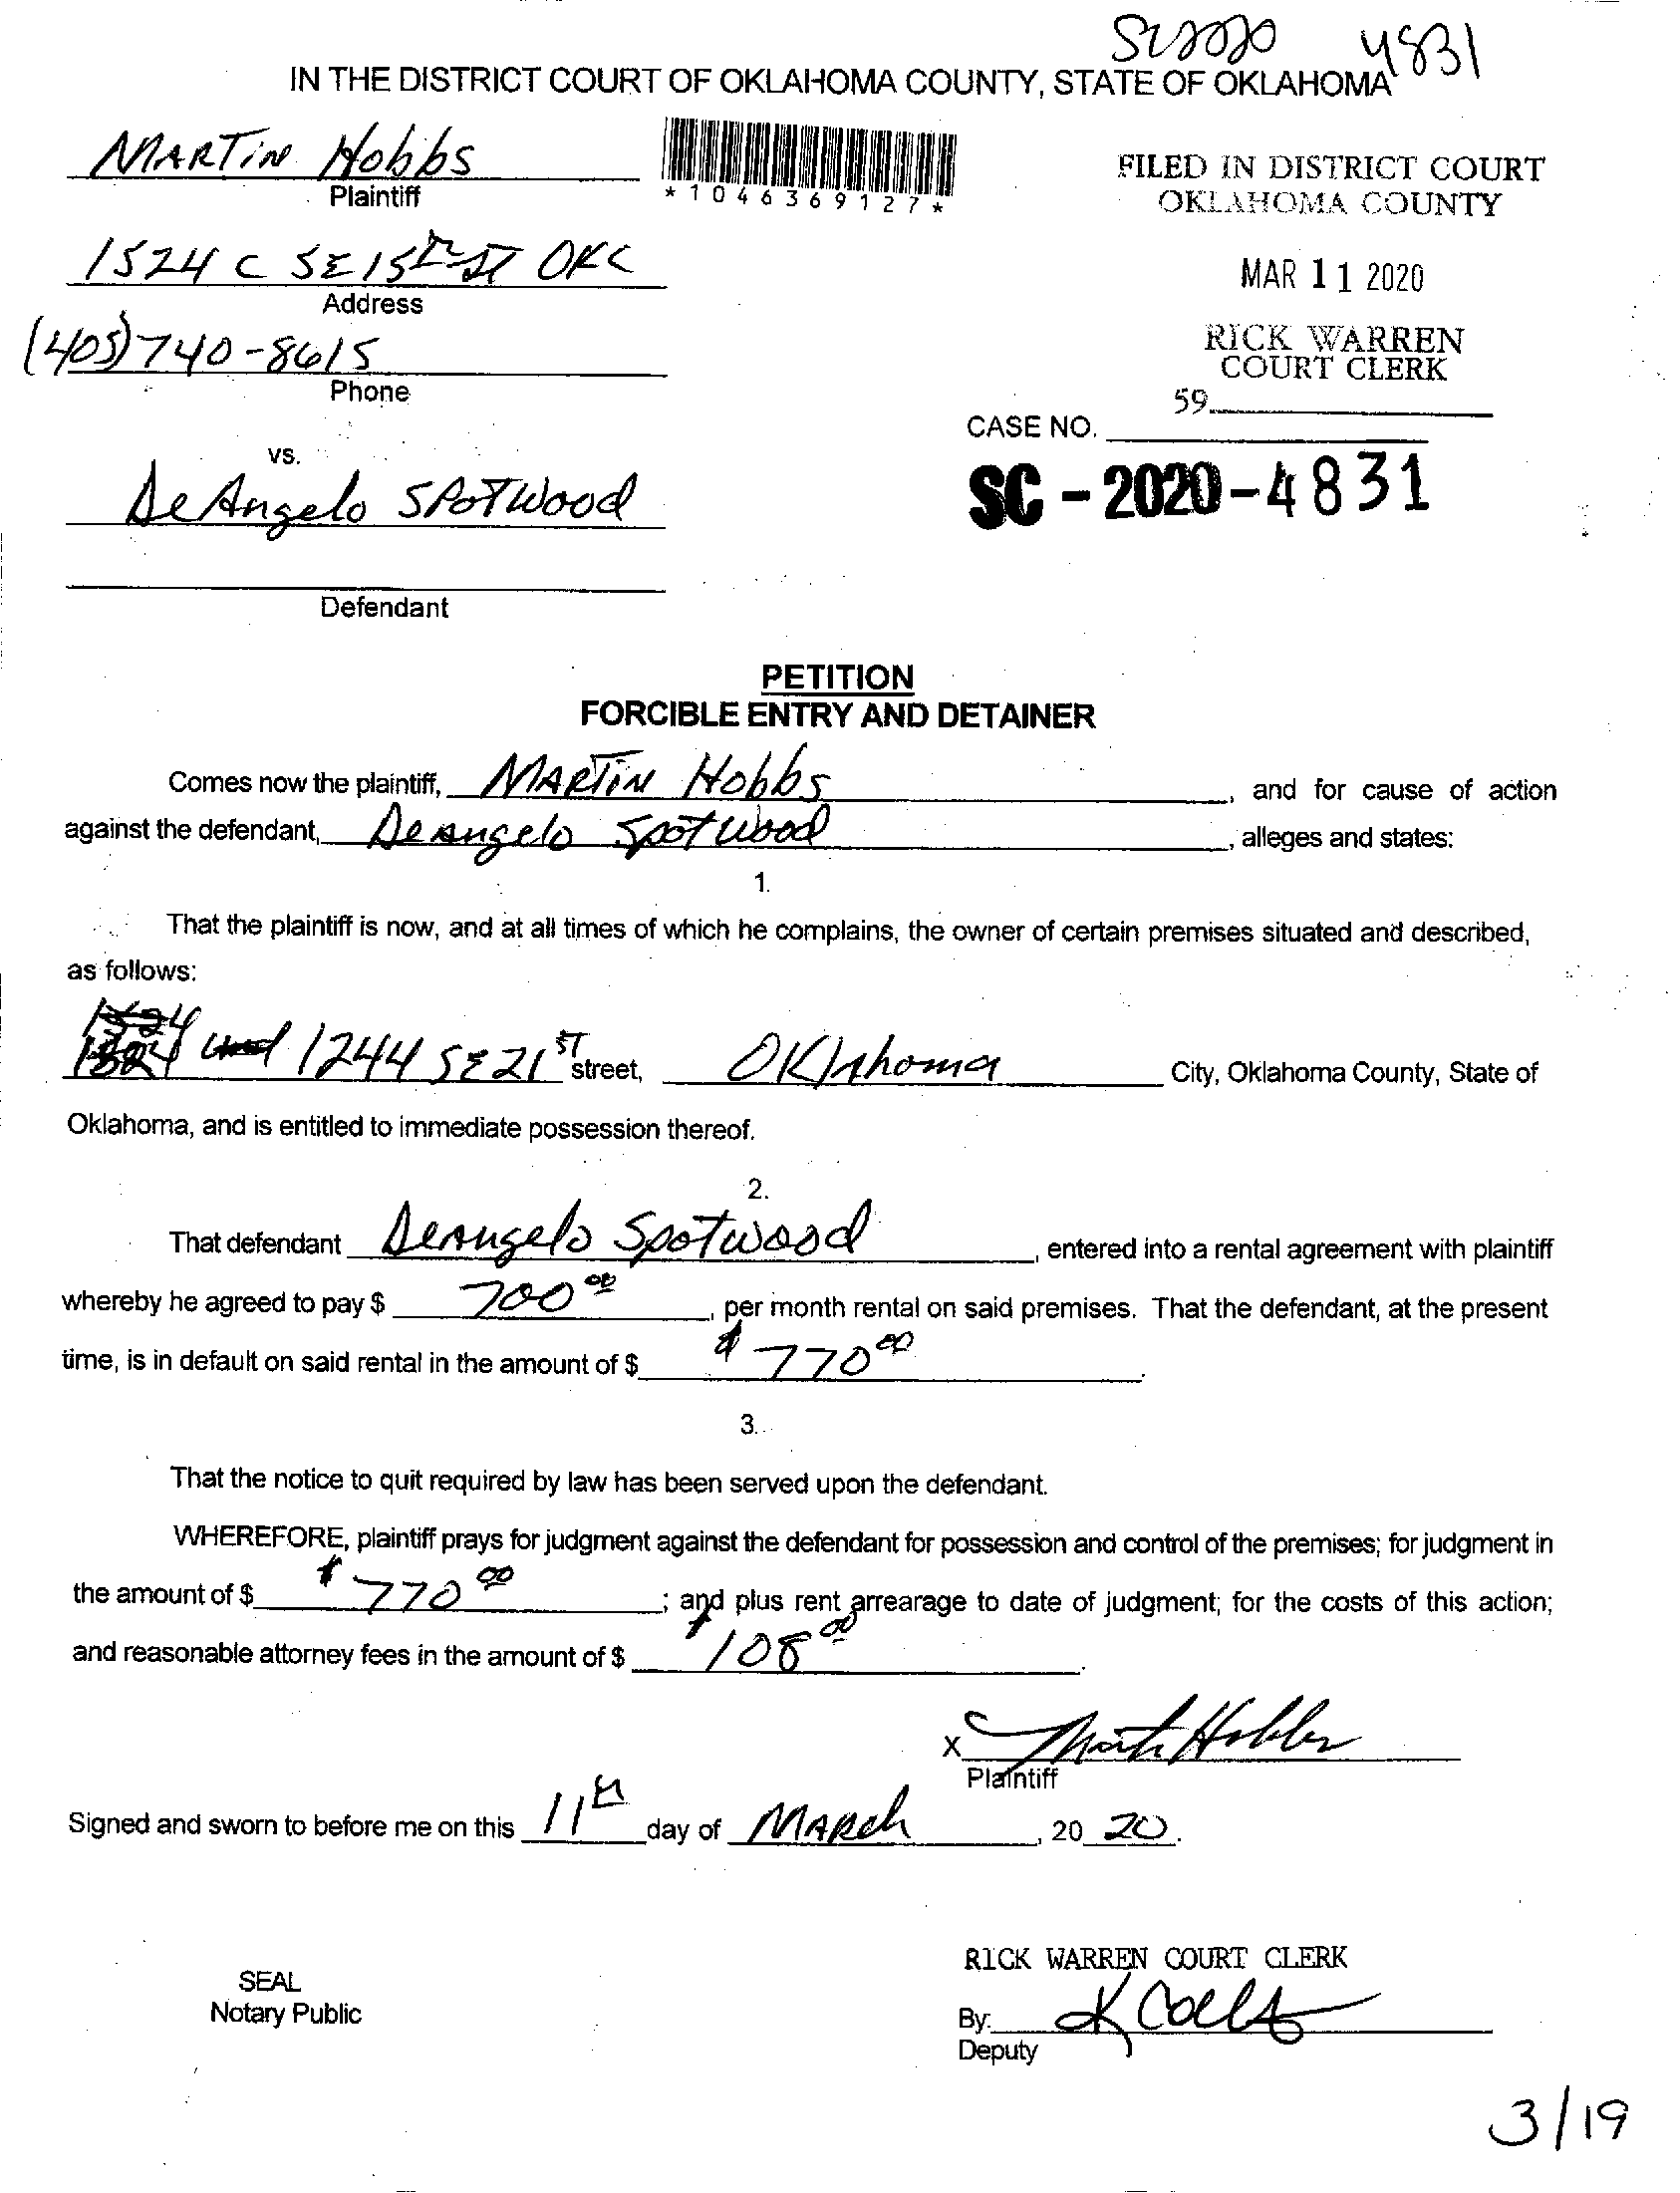 SC2020 4831
IN THE DISTRICT COURT OF OKLAHOMA COUNTY, STATE OF OKLAHOMA
MARTIN Hobbs
Plaintiff
*1046369127*
FILED IN DISTRICT COURT
OKLAHOMA COUNTY
1524 C SE 15th ST OKC
Address
MAR 11 2020
(405) 740-8615
Phone
RICK WARREN
COURT CLERK
59
CASE NO.
vs.
DeAngelo SPOTWood
SC - 2020-4831
Defendant
PETITION
FORCIBLE ENTRY AND DETAINER
Comes now the plaintiff, MARTIN Hobbs, and for cause of action
against the defendant, DeAngelo Spotwood, alleges and states:
1.
That the plaintiff is now, and at all times of which he complains, the owner of certain premises situated and described,
as follows:
1244 SE 21ST street, OKlahoma City, Oklahoma County, State of
Oklahoma, and is entitled to immediate possession thereof.
2.
That defendant DeAngelo Spotwood, entered into a rental agreement with plaintiff
whereby he agreed to pay $ 700 00, per month rental on said premises. That the defendant, at the present
time, is in default on said rental in the amount of $ $ 770 00.
3.
That the notice to quit required by law has been served upon the defendant.
WHEREFORE, plaintiff prays for judgment against the defendant for possession and control of the premises; for judgment in
the amount of $ $ 770 00; and plus rent arrearage to date of judgment; for the costs of this action;
and reasonable attorney fees in the amount of $ $ 108 00.
X
Plaintiff
Signed and sworn to before me on this 11th day of MARch, 20 20.
RICK WARREN COURT CLERK
SEAL
Notary Public
By:
Deputy
3/19